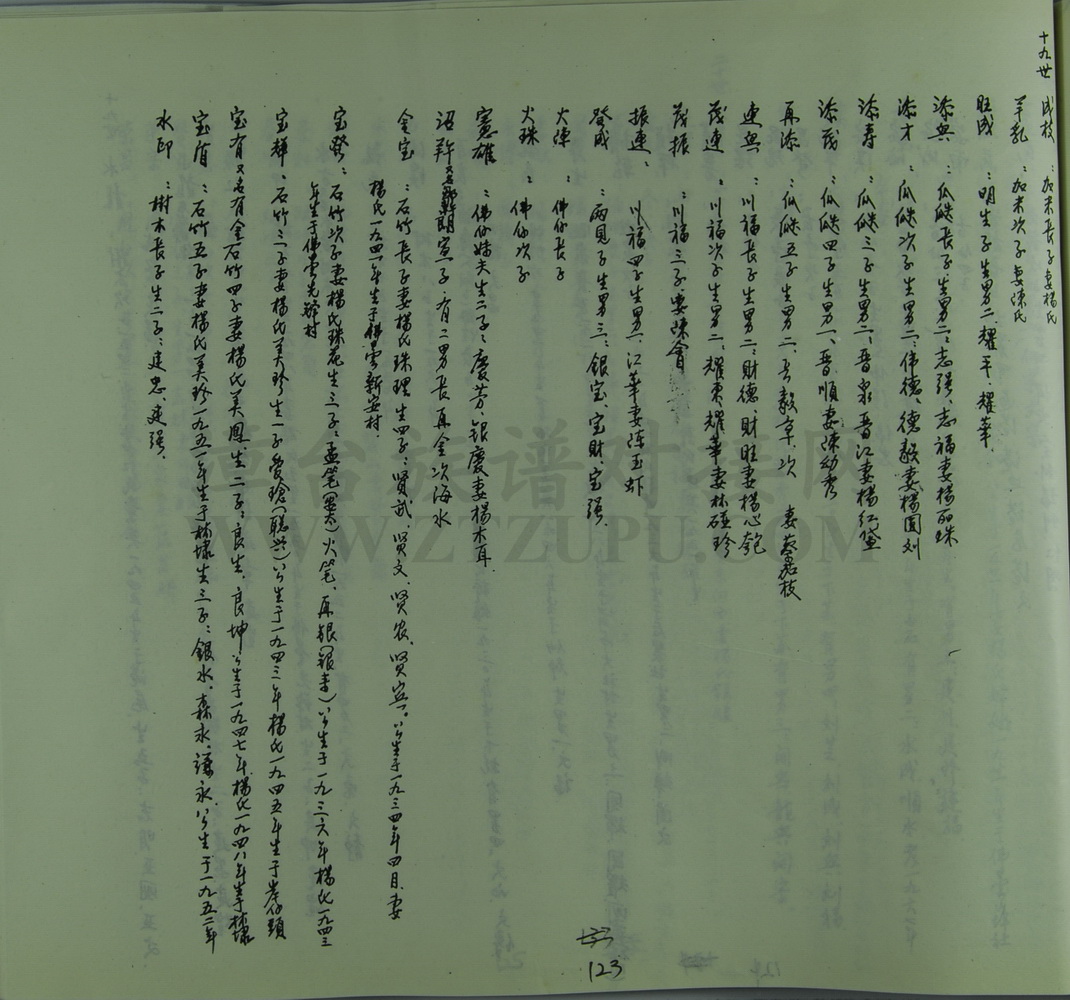 十九世 成枝：加禾長子妻楊氏
羊乳：加禾次子妻陳氏
旺成：明生子生男二、耀平、耀華
添興：瓜瓞長子生男二：志强、志福妻楊丽珠
添才：瓜瓞次子生男二：偉德、德毅妻楊圓刘
添寿：瓜瓞三子生男二、晋泉晋江妻楊紅黛
添茂：瓜瓞四子生男一、晋順妻陳幼秀
再添：瓜瓞五子生男二、长毅章、次 妻蔡碧枝
連興：川福長子生男二：財德、財旺妻楊心匏
茂連：川福次子生男二：耀東、耀華妻林碰珍
茂振：川福三子妻陳會
振連：川福四子生男一、江華妻陈玉虾
發成：两見子生男三：銀宝、宝財、宝强
大陣：佛仔長子
火珠：佛仔次子
憲雄：佛仔妹夫生二子：慶芳、銀慶妻楊木耳
詔許 朝宣子、有二男長再金次海水
金宝：石竹長子妻楊氏珠理生四子：贤武、贤文、贤农、贤宾。公生于一九三四年四月、妻
楊氏一九四一年生于佛曇新安村
宝發：石竹次子妻楊氏珠花生三子：孟笔 火笔、再銀(銀春)公生于一九三六年楊氏一九四三
年生于佛曇先鋒村
宝輝、石竹三子妻楊氏美珍生一子愛瑲(聪兴)公生于一九四三年楊氏一九四五年生于岸仔頭
宝有又名有金石竹四子妻楊氏美鳳生二子：良生、良坤公生于一九四七年楊氏一九四八年生于林埭
宝盾：石竹五子妻楊氏美珍一九五一年生于林埭生三子：銀水、森永、議永公生于一九五二年
水印：樹木長子生二子：建忠、建强
123
卓台家谱对接网
WWW.ZTZUPU.COM